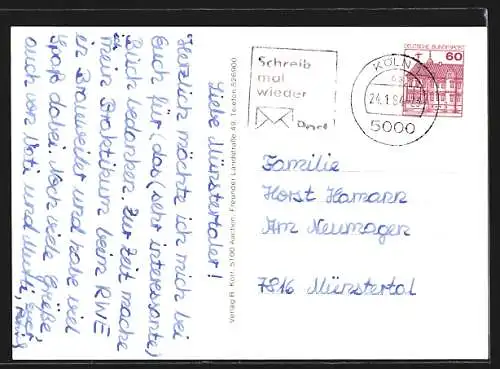 Liebe Münstertaler!
Herzlich möchte ich mich bei
Euch für (das (sehr interessante)
Buch bedanken. Zur Zeit mache
ich
mein Praktikum beim RWE
in Brauweiler und habe viel
Spaß dabei. Noch viele Grüße
auch von Vati und Mutti, Euer,
Verlag R. Korr, 5100 Aachen, Freunder Landstraße 49, Telefon 526900
Schreib
mal
wieder
Post
KÖLN
24.1.84
5000
DEUTSCHE BUNDESPOST
60
Familie
Horst Hamann
Am Neumagen
7816 Münstertal